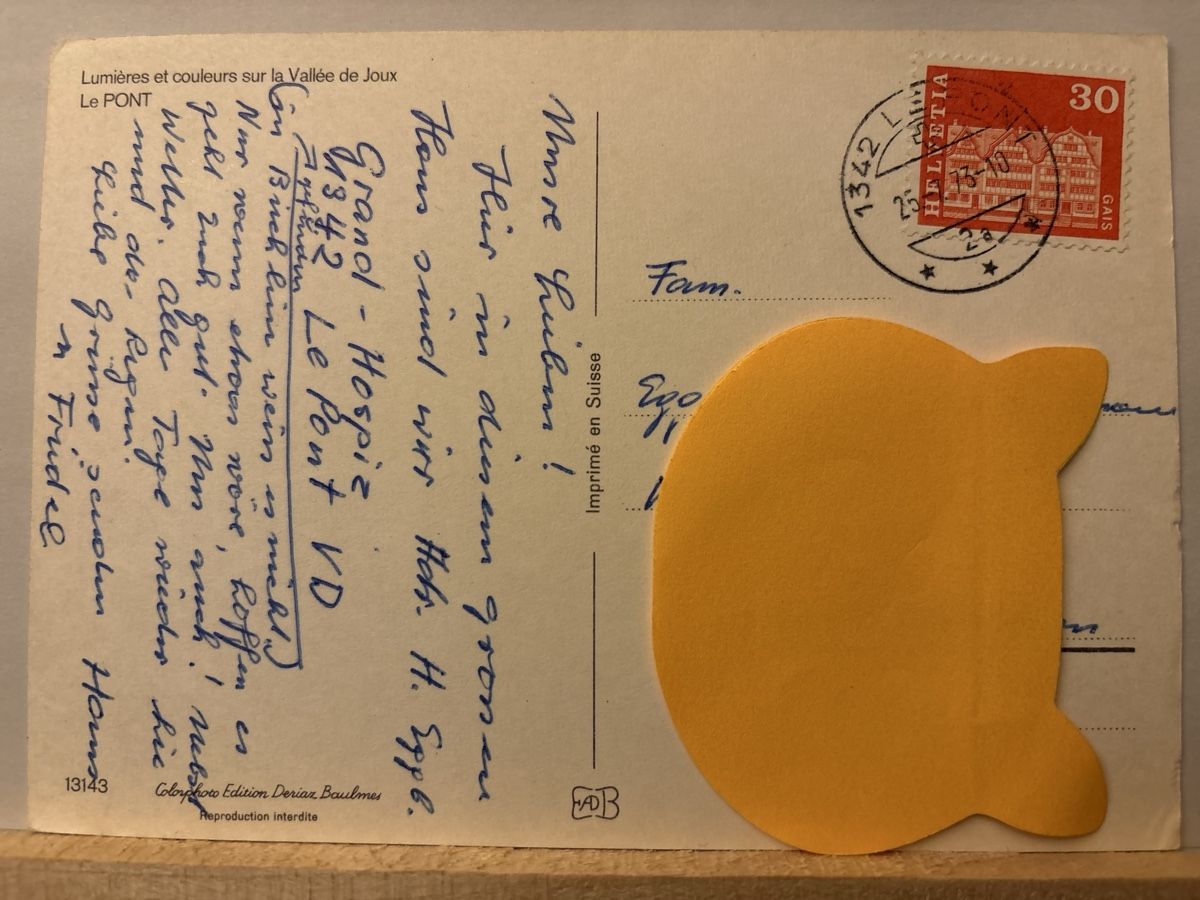 Lumières et couleurs sur la Vallée de Joux
Le PONT
Unsre Lieben!
Hier in diesem grossen
Haus sind wir Adr. H. Eggb.
Grand-Hospiz
1342 Le Pont VD
(ein Brieflein wein es nicht.)
Nur wenn etwas wäre, hoffen es
geht Euch gut. Uns auch!
Wetter. Alle Tage wieder
und da. Regen!
Liebe Grüsse senden Hans
n Friedel
13143
Colorphoto Edition Deriaz Baulmes
Reproduction interdite
Imprimé en Suisse
EADB
HELVETIA
30
GAIS
1342 LE PONT
73-10
2a
Fam.